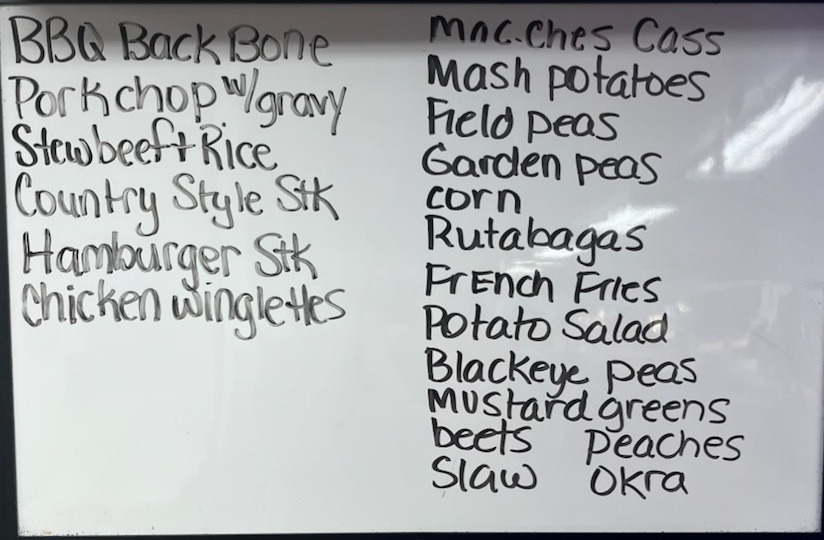 BBQ Back Bone
Porkchop w/gravy
Stewbeef + Rice
Country Style Stk
Hamburger Stk
Chicken winglettes
Mac.Ches Cass
Mash potatoes
Field peas
Garden peas
corn
Rutabagas
FrEnch Fries
Potato Salad
Blackeye peas
Mustard greens
beets peaches
Slaw Okra